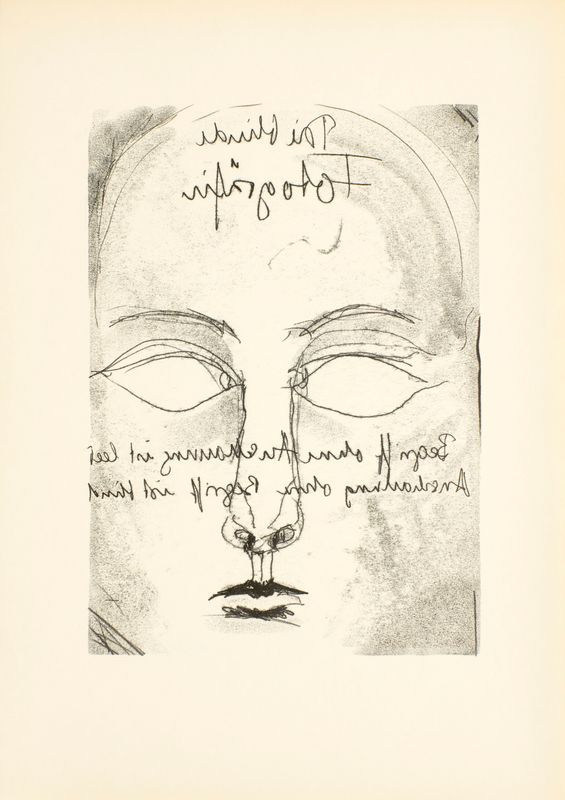 Die blinde
Fotogräfin
Begriff ohne Anschauung ist leer
Anschauung ohne Begriff ist blind